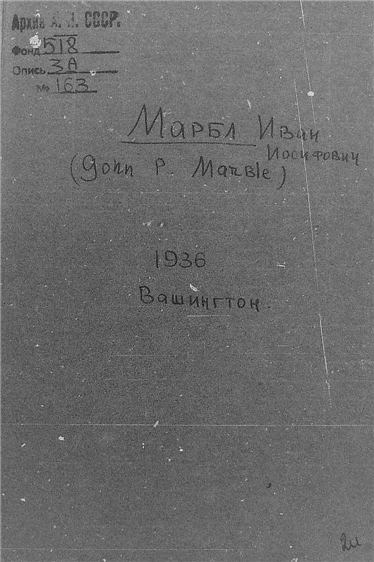 Архив А. Н. СССР.
Фонд 518
Опись 3А
№ 163
Марбл Иван
Иосифович
(John P. Marble)
1936
Вашингтон.
2л